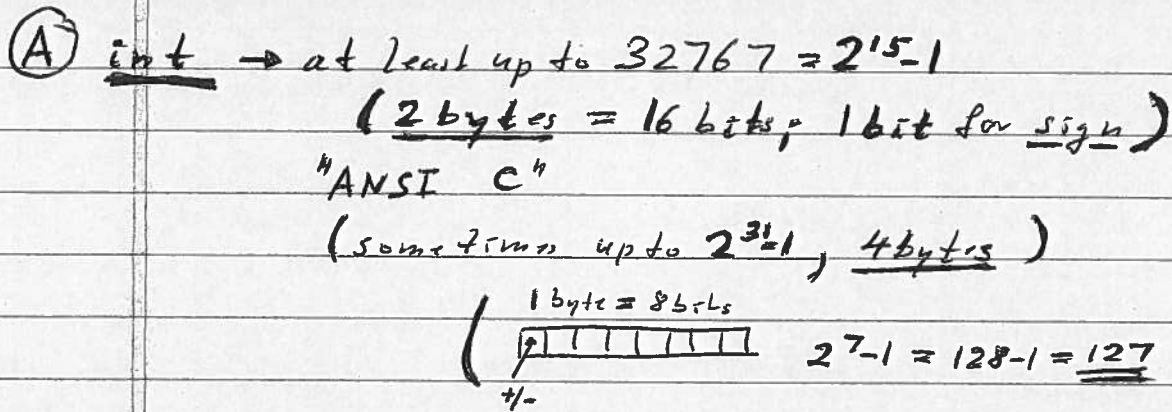 (A) int → at least up to 32767 = 2^15-1
(2 bytes = 16 bits, 1 bit for sign)
"ANSI C"
(sometimes up to 2^31-1, 4 bytes)
1 byte = 8 bits
( 2^7-1 = 128-1 = 127
+/-